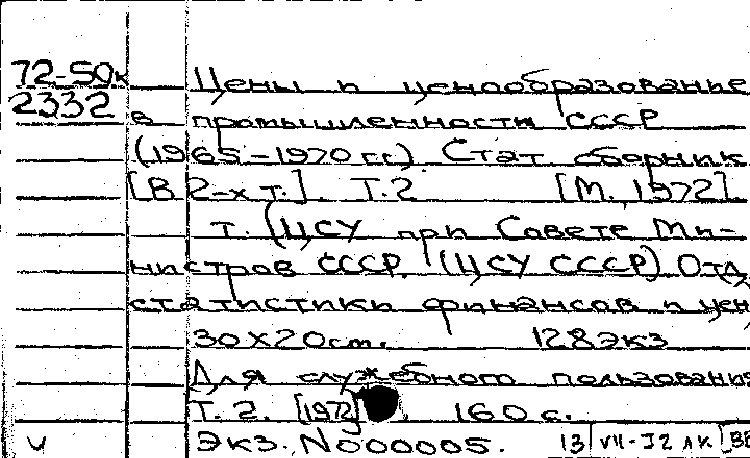 72-50к Цены и ценообразование
2332 в промышленности СССР
(1965-1970 гг.) Стат. сборник
[В 2-х т.]. Т.2 [М., 1972].
т. (ЦСУ при Совете Ми-
нистров СССР. (ЦСУ СССР) Отд
статистики финансов и цен
30X20 см. 128 экз
Для служебного пользования
Т. 2. [1972]. 160 с.
Экз. №000005. 13 VII-72 АК